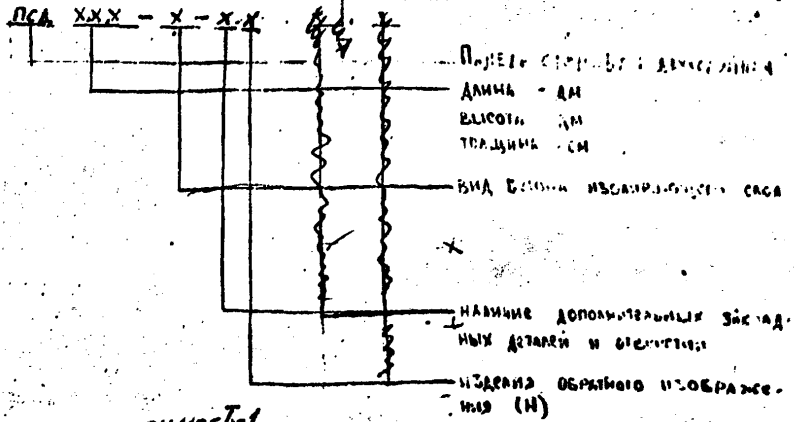 ПСД XXX - X - X.X
ПАНЕЛЬ СТЕНОВАЯ ДВУХСЛОЙНАЯ
ДЛИНА - ДМ
ВЫСОТА ДМ
ТОЛЩИНА - СМ
ВИД БЕТОНА ИЗОЛИРУЮЩЕГО СЛОЯ
НАЛИЧИЕ ДОПОЛНИТЕЛЬНЫХ ЗАКЛАД-
НЫХ ДЕТАЛЕЙ И ОТВЕРСТИЙ
ИЗДЕЛИЯ ОБРАТНОГО ИЗОБРАЖЕ-
НИЯ (Н)